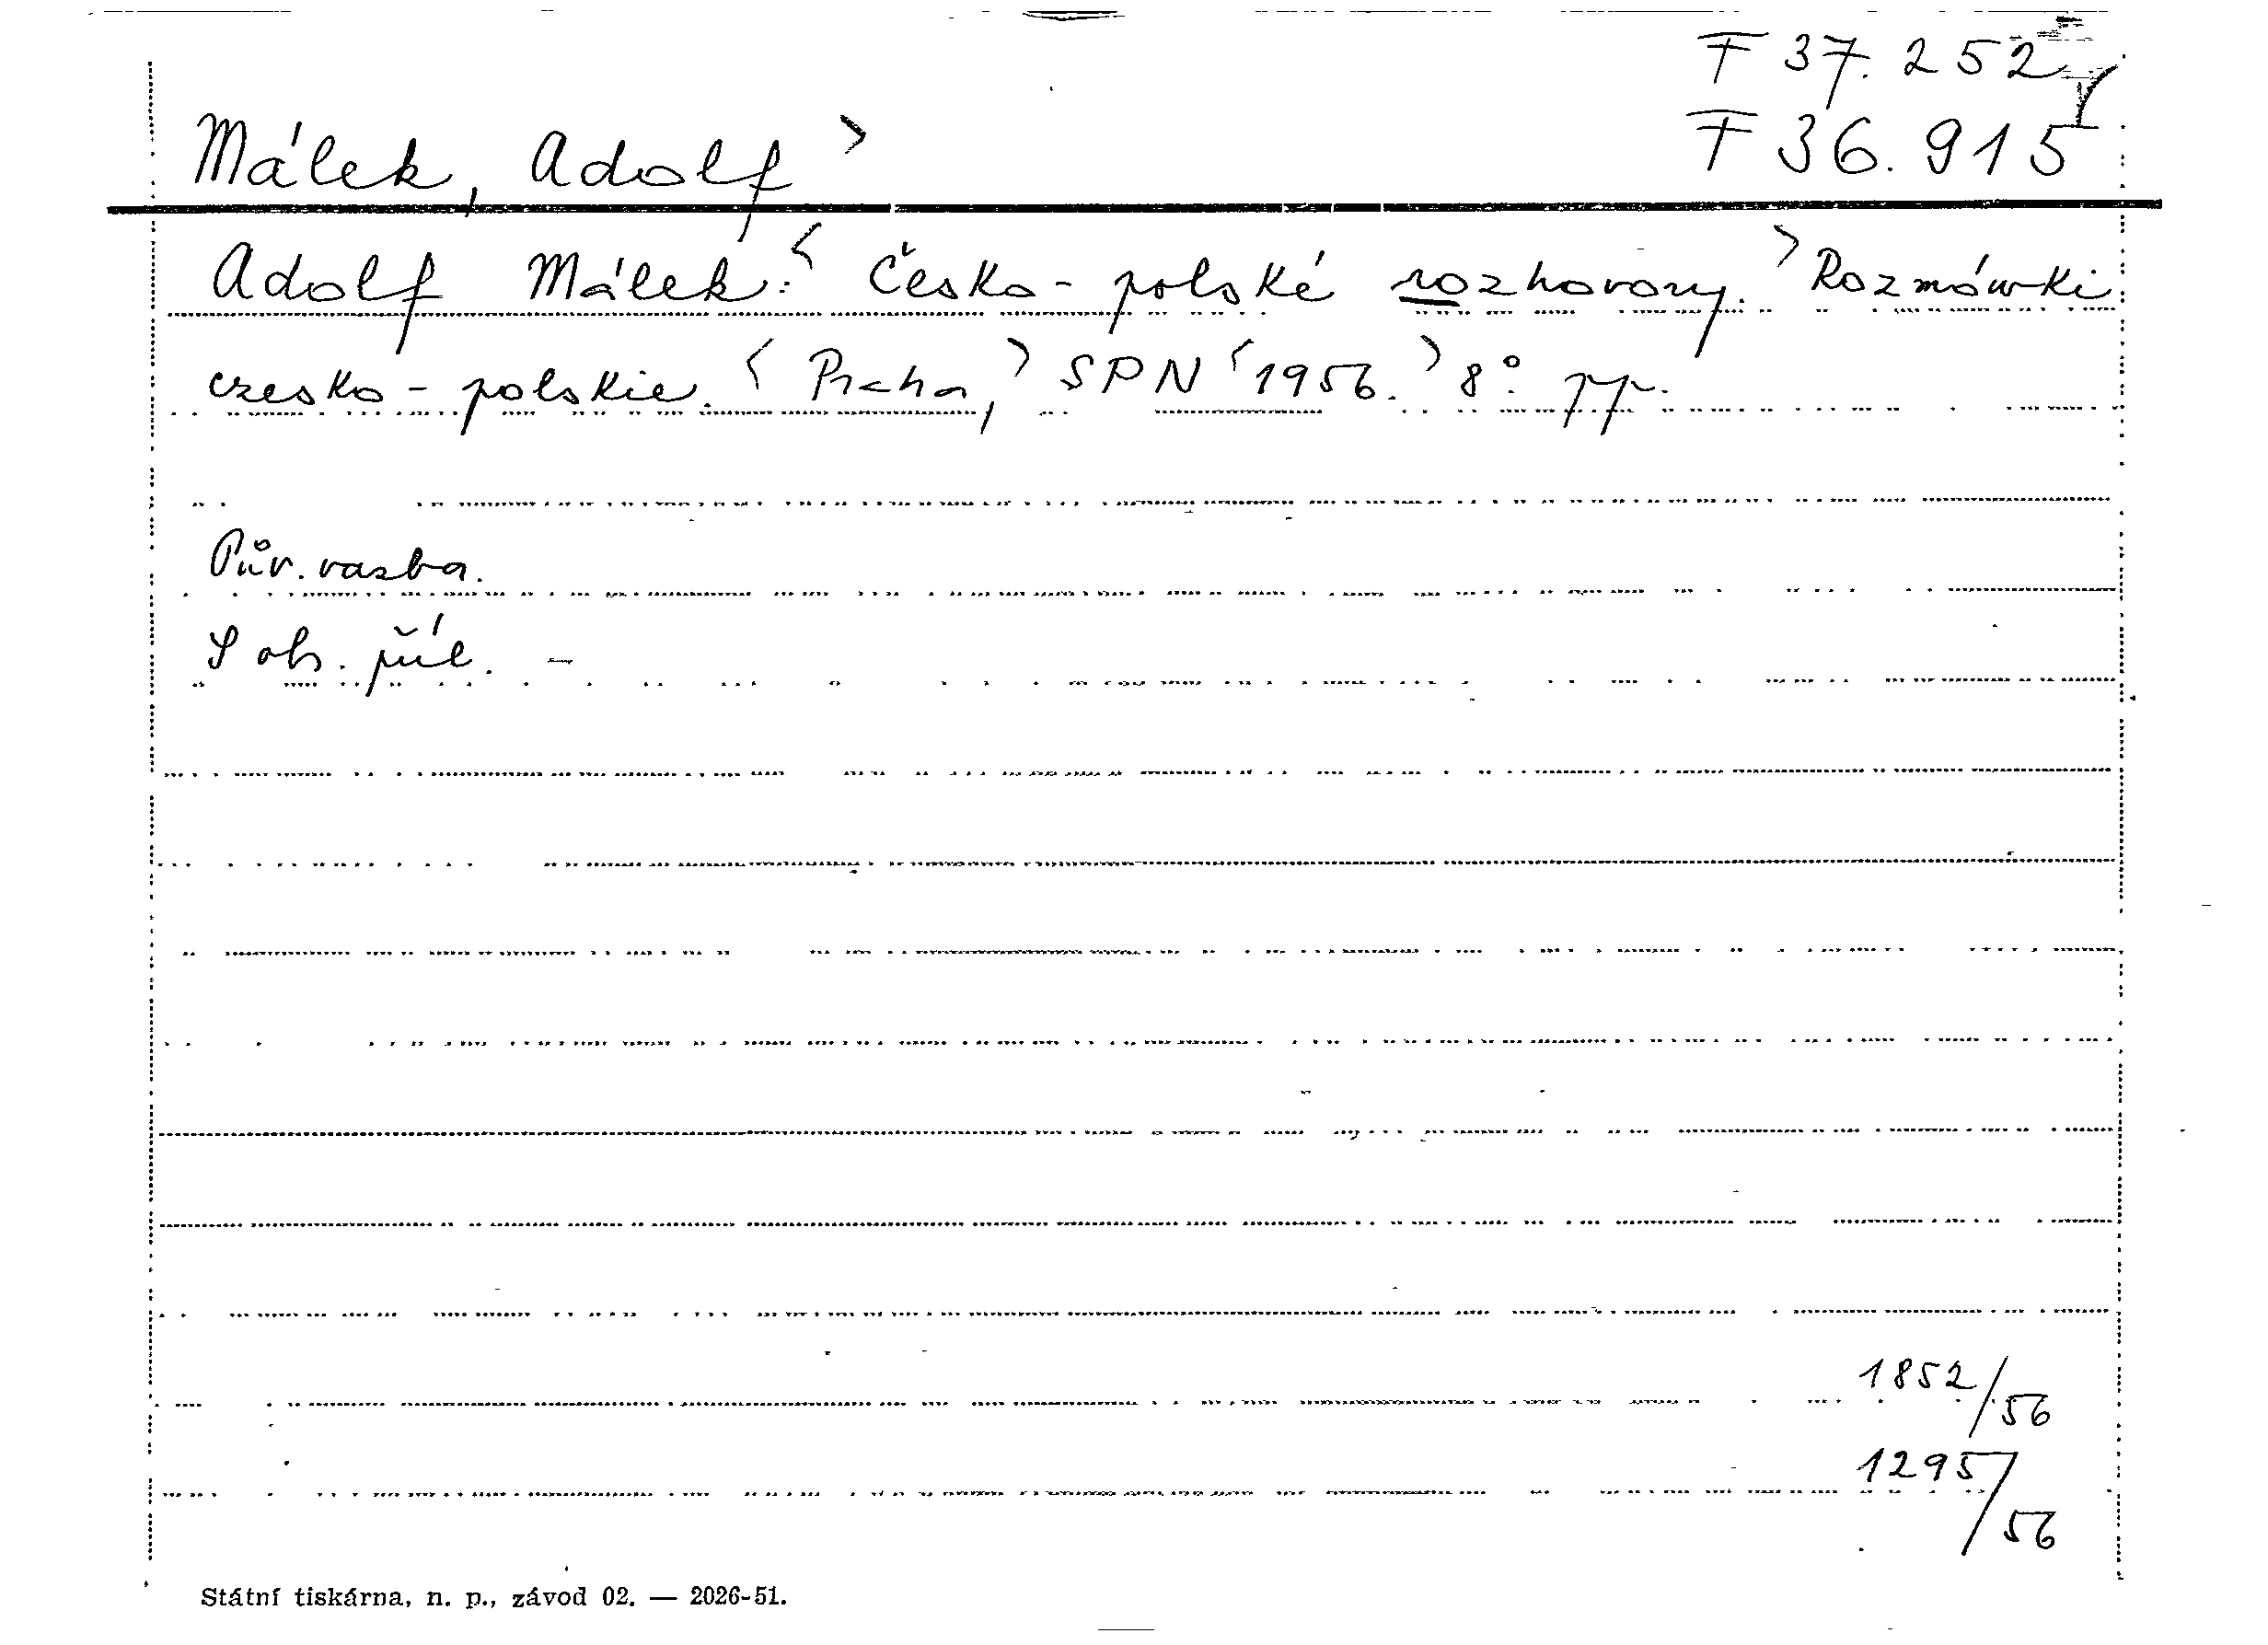 F 37.252
F 36.915
Málek, Adolf >
Adolf Málek: < Česko-polské rozhovory. > Rozmówki
czesko-polskie. < Praha, > SPN < 1956. > 8° pp.
Pův. vazba.
S ob. příl. -
1852/56
1295/56
Státní tiskárna, n. p., závod 02. — 2026-51.